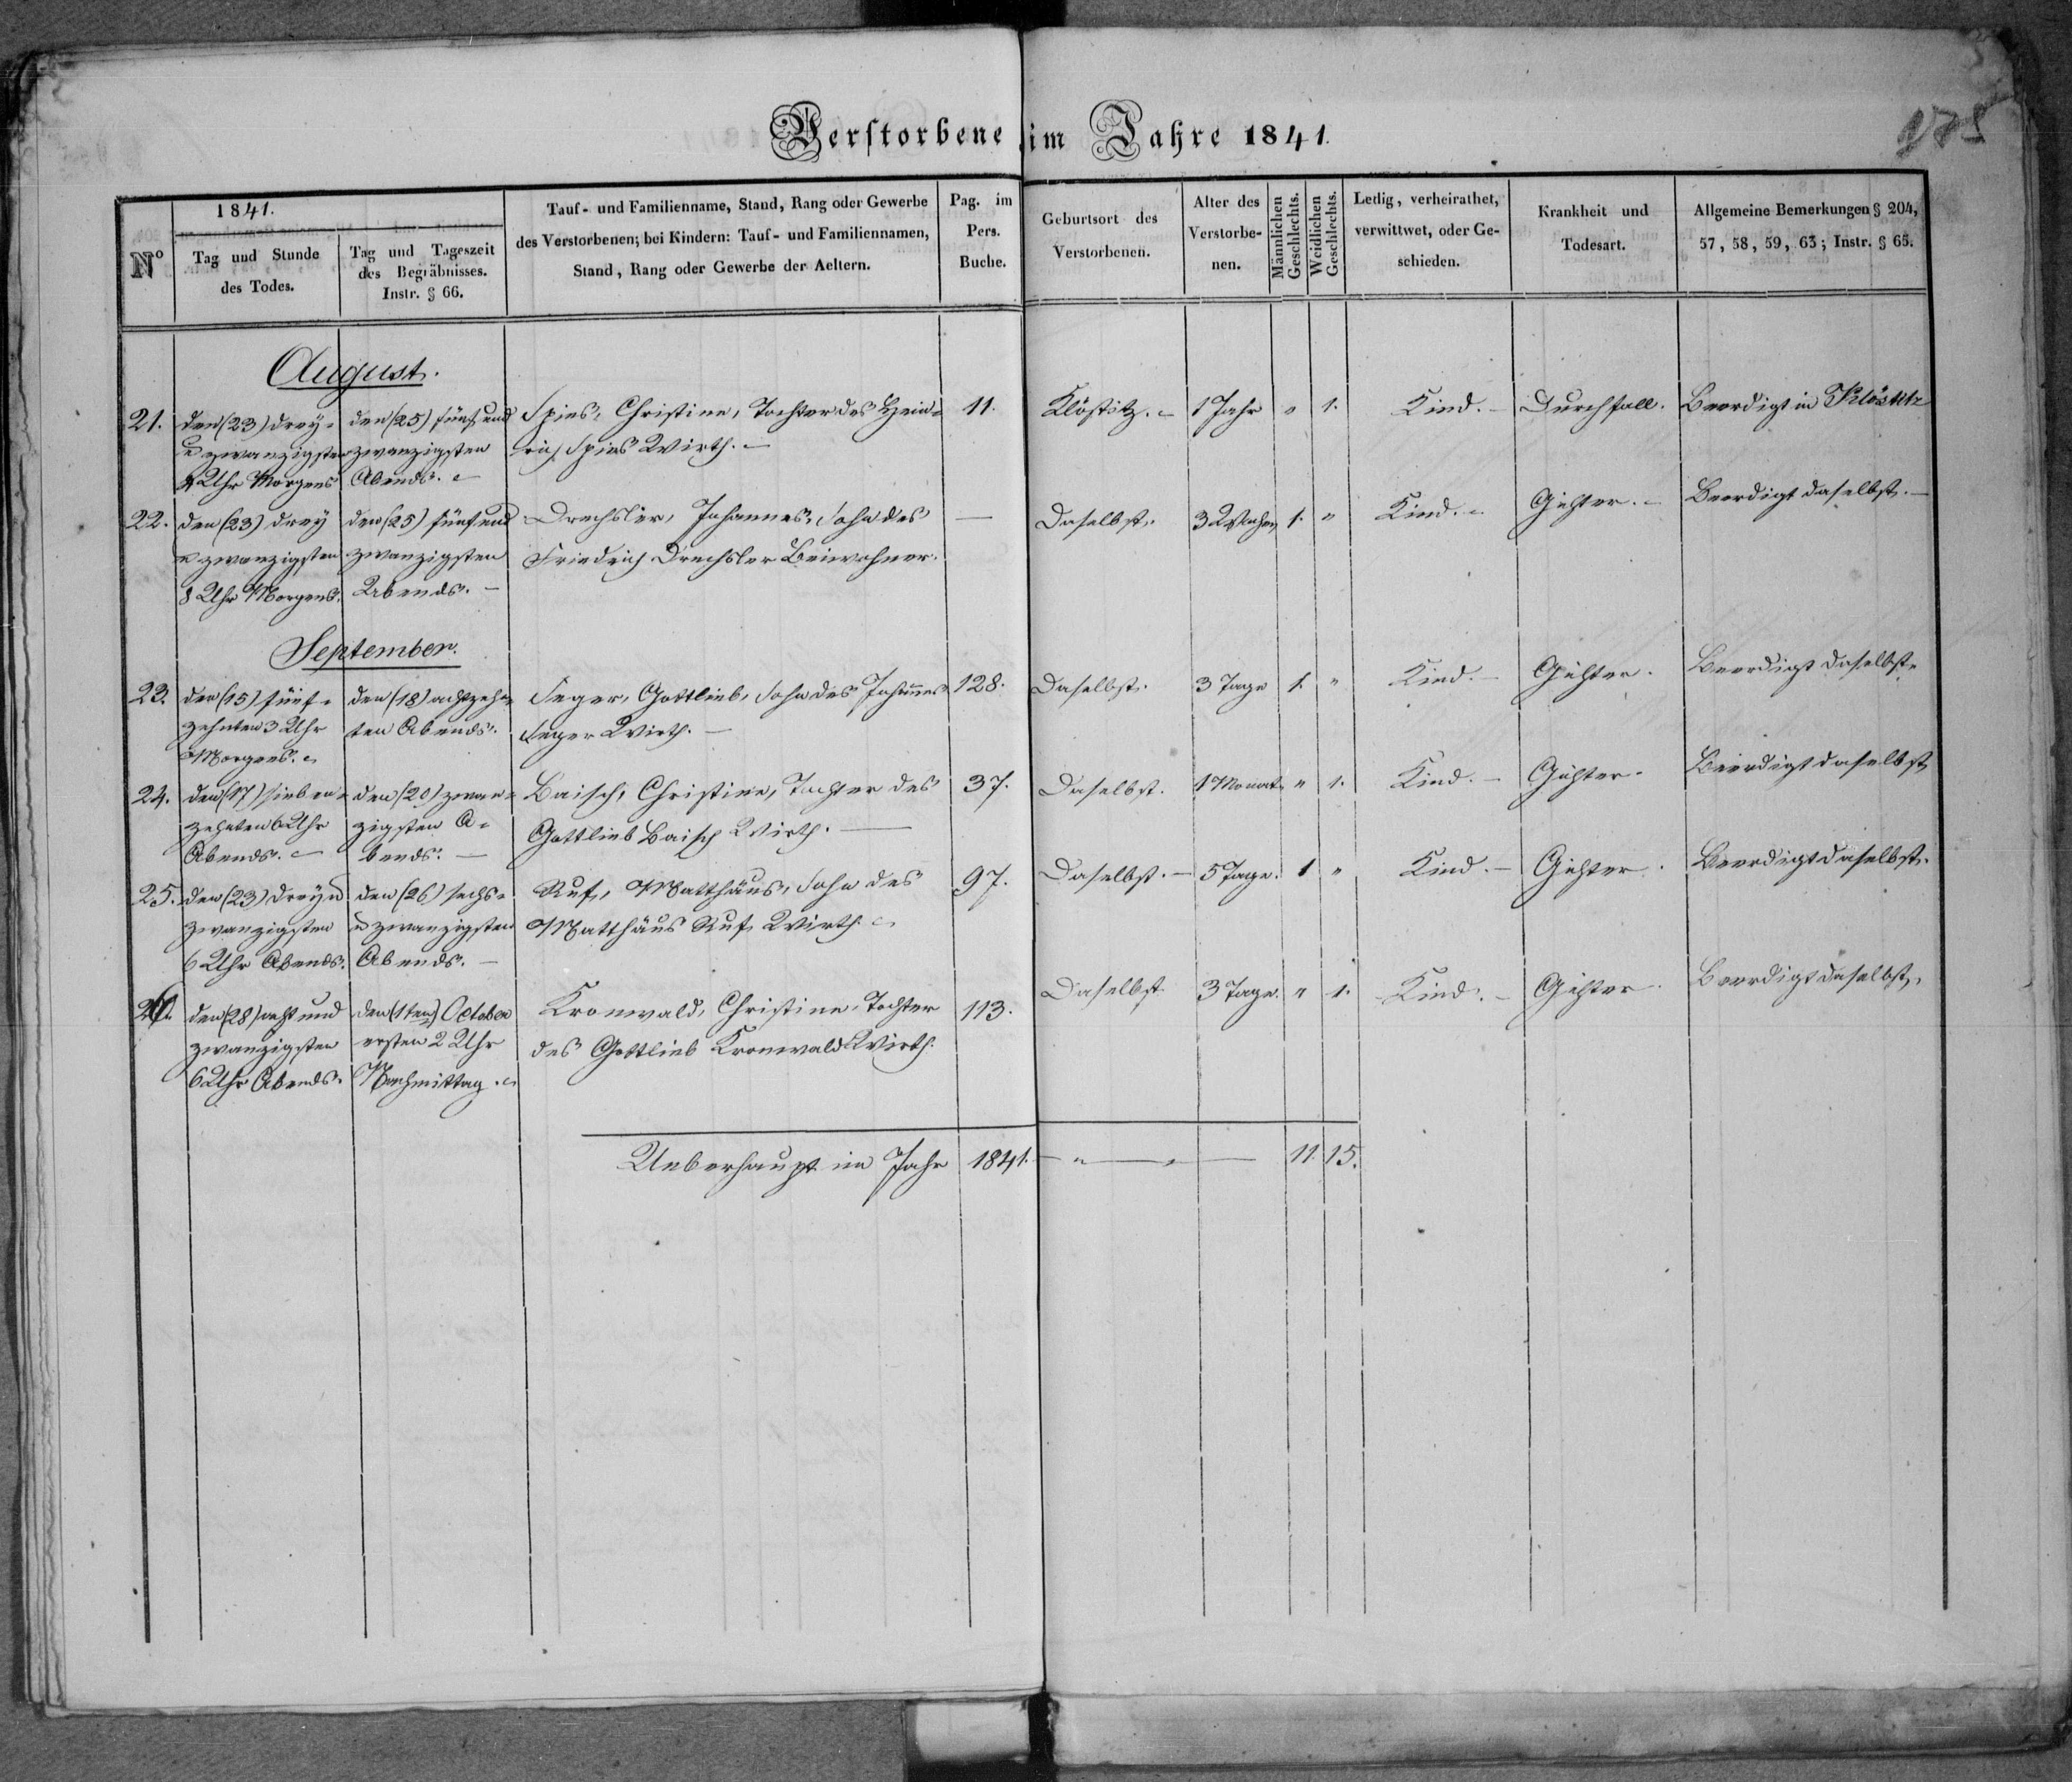 Verstorbene im Jahre 1841.
175
Nº
1841.
Tag und Stunde
des Todes.
Tag und Tageszeit
des Begräbnisses.
Instr. § 66.
Tauf- und Familienname, Stand, Rang oder Gewerbe
des Verstorbenen; bei Kindern: Tauf- und Familiennamen,
Stand, Rang oder Gewerbe der Aeltern.
Pag. im
Pers.
Buche.
Geburtsort des
Verstorbenen.
Alter des
Verstorbe-
nen.
Männlichen
Geschlechts.
Weidlichen
Geschlechts.
Ledig, verheirathet,
verwittwet, oder Ge-
schieden.
Krankheit und
Todesart.
Allgemeine Bemerkungen § 204,
57, 58, 59, 63; Instr. § 65.
August.
21.
den (23) drey-
u zwanzigsten
4 Uhr Morgens
den (25) fünf und
zwanzigsten
Abends.
Spies, Christine, Tochter des Hein-
rich Spies Wirth. —
11.
Klöstitz. —
1 Jahr
"
1.
Kind. —
Durchfall.
Beerdigt in Klöstitz
22.
den (23) drey
u zwanzigsten
8 Uhr Morgens.
den (25) fünf und
zwanzigsten
Abends. —
Drechsler, Johannes, Sohn des
Friedrich Drechsler Beiwohner.
—
Daselbst.
3 Wochen
1.
"
Kind. —
Gichter. —
Beerdigt daselbst. —
September.
23.
den (15) fünf-
zehnten 3 Uhr
Morgens.
den (18) achtzehn-
ten Abends.
Seger, Gottlieb, Sohn des Johannes
Seger Wirth. —
128.
Daselbst.
3 Tage
1.
"
Kind. —
Gichter.
Beerdigt daselbst.
24.
den (17) sieben-
zehnten 6 Uhr
Abends. —
den (20) zwan-
zigsten A-
bends. —
Baisch, Christine, Tochter des
Gottlieb Baisch Wirth. —
37.
Daselbst.
1 Monat
"
1.
Kind. —
Gichter.
Beerdigt daselbst
25.
den (23) drey u
zwanzigsten
6 Uhr Abends.
den (26) sechs-
u zwanzigsten
Abends. —
Ruf, Matthäus, Sohn des
Matthäus Ruf Wirth.
97.
Daselbst. —
5 Tage.
1
"
Kind. —
Gichter.
Beerdigt daselbst.
26.
den (28) acht und
zwanzigsten
6 Uhr Abends.
den (1ten) October
ersten 2 Uhr
Nachmittag.
Kronwald, Christine, Tochter
des Gottlieb Kronwald Wirth.
113.
Daselbst
3 Tage.
"
1.
Kind. —
Gichter.
Beerdigt daselbst.
Ueberhaupt im Jahr 1841. — " — " — 11. 15.